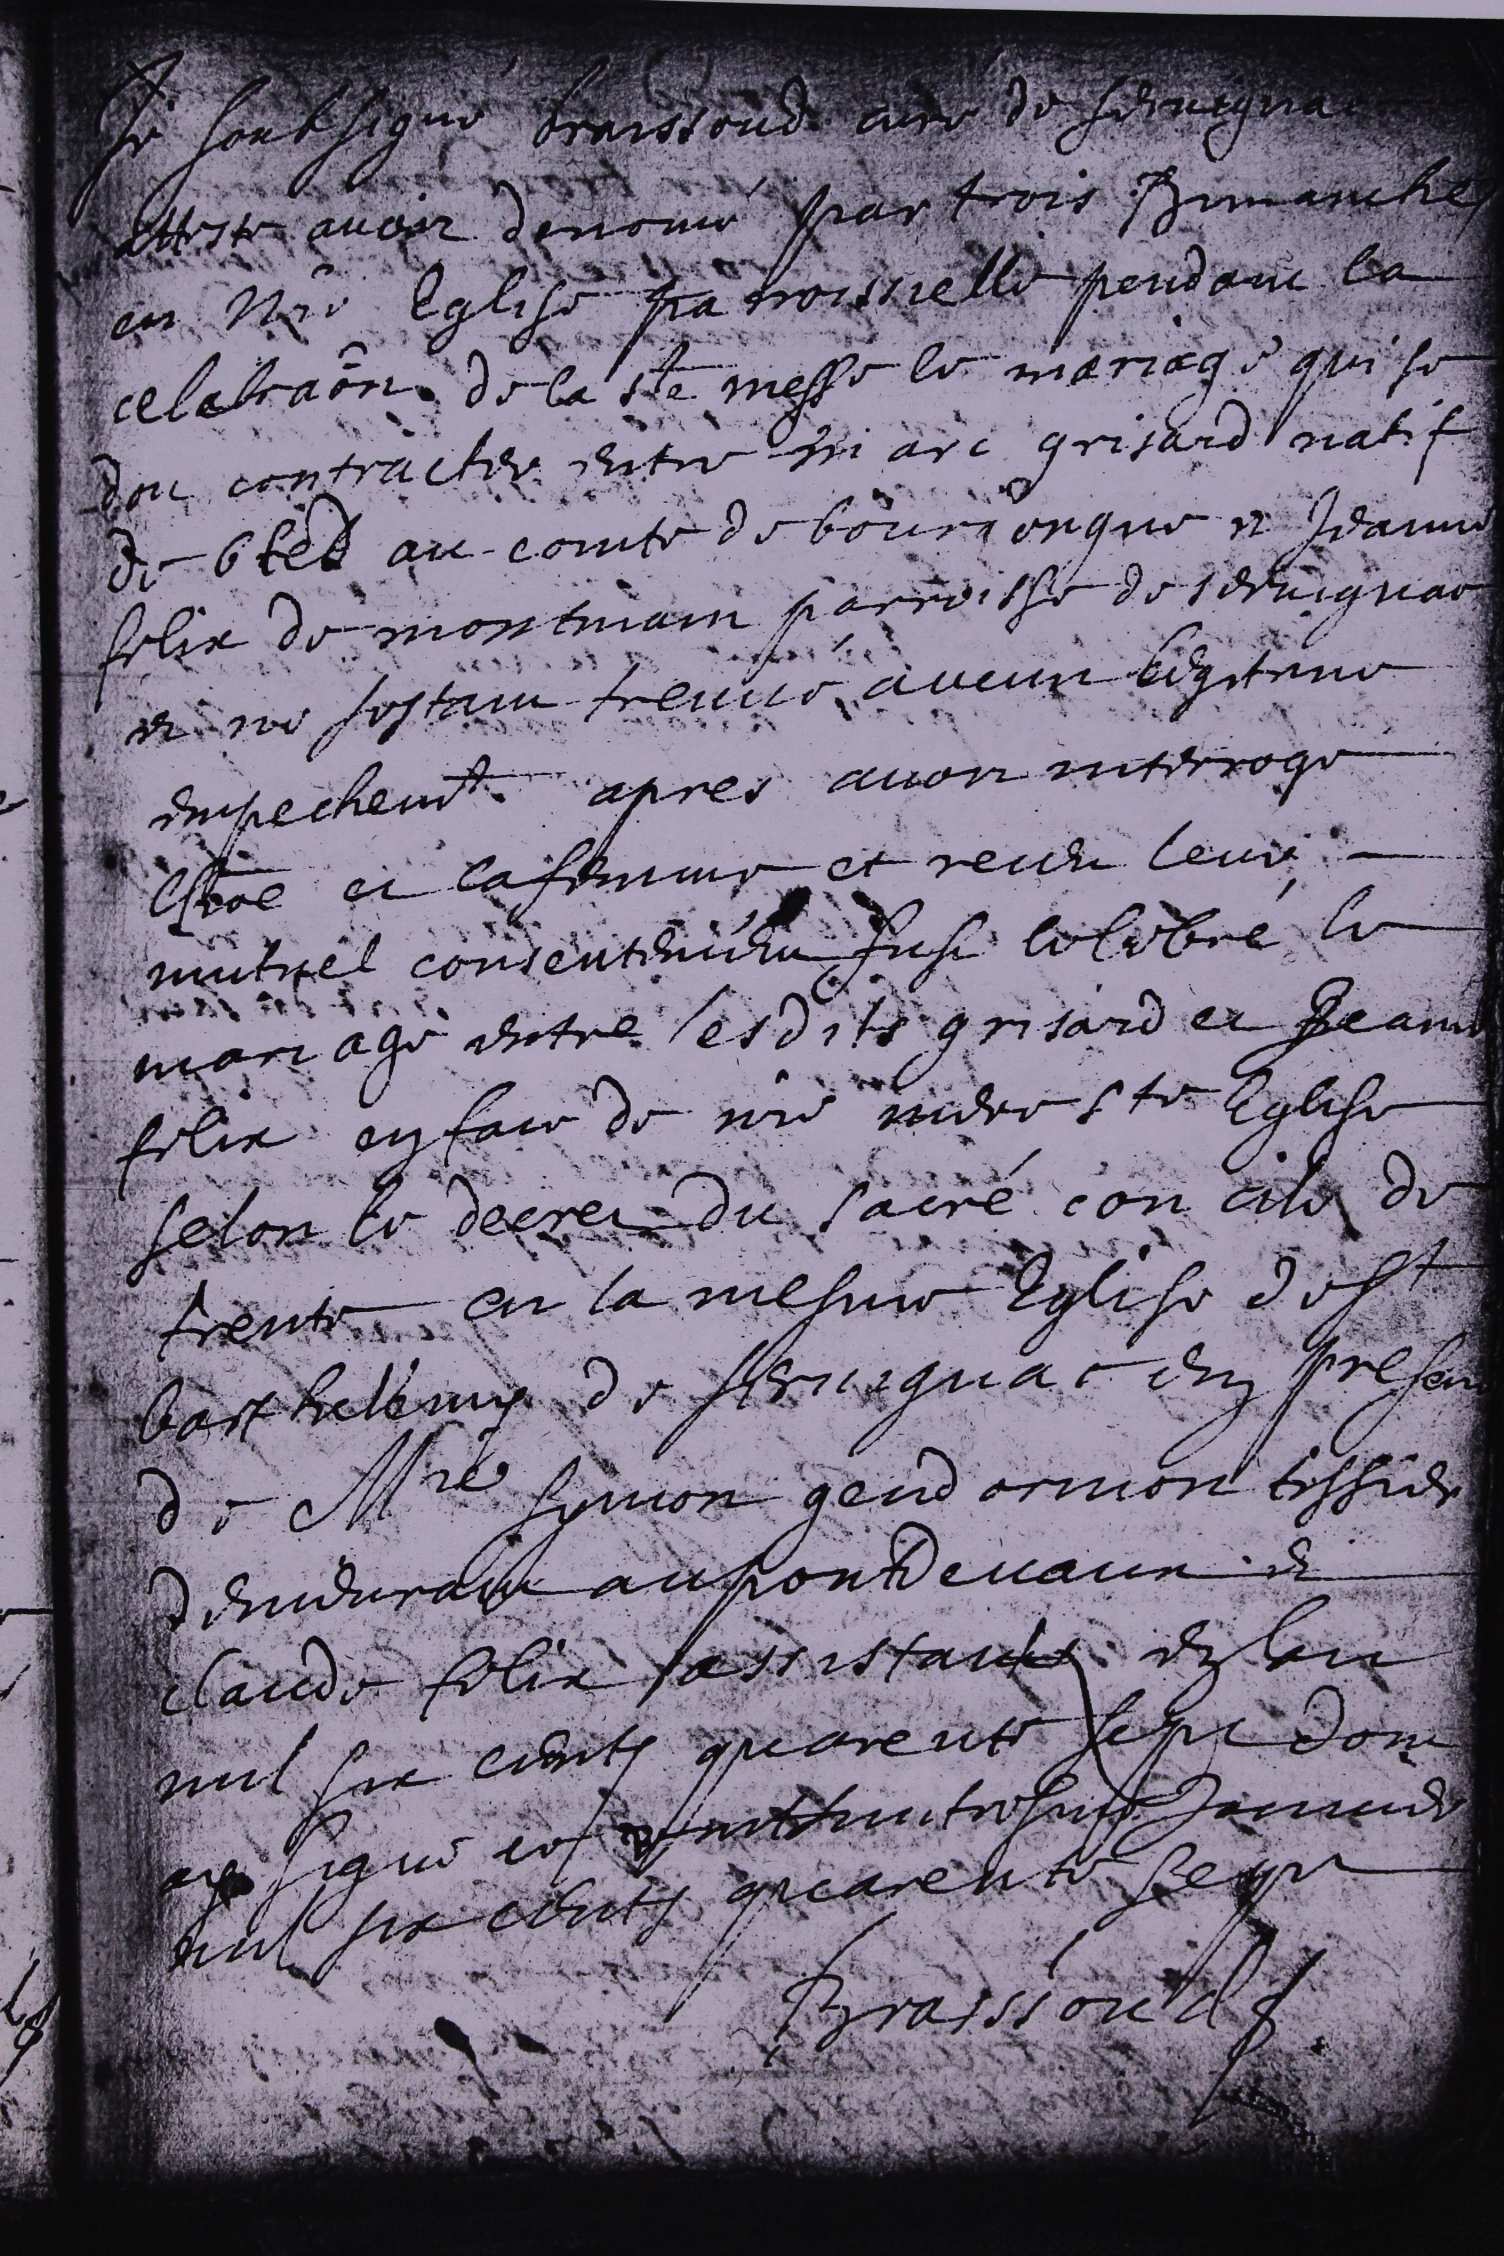 Je soubsigné braissoud curé de servigna
atteste avoir denoncé par trois Dimanches
en nre Eglise parroissielle pendant la
celebraôn de la ste messe le mariage qui se
doit contracter entre marc grisard natif
de au comte de bourgongne et Jeanne
felix de montmain parroisse de servignac
et ne sestant treuvé aucun legitime
empechemt apres avoir interrogé
et la femme et receu leur
mutuel consentement Jusse celebré le
mariage entre lesdits grisard et Jeanne
felix en face de nre mere ste Eglise
selon le decret du sacré concile de
trente en la mesme Eglise de st
barthelemy de servignac en presen
de Mre symon gendarmon tissier
demeurant au pontdevaux et
claude felix assistants en lan
mil six cents quarente sept dont
ay signé ce Janvier
mil six cents quarente sept
Braissoud